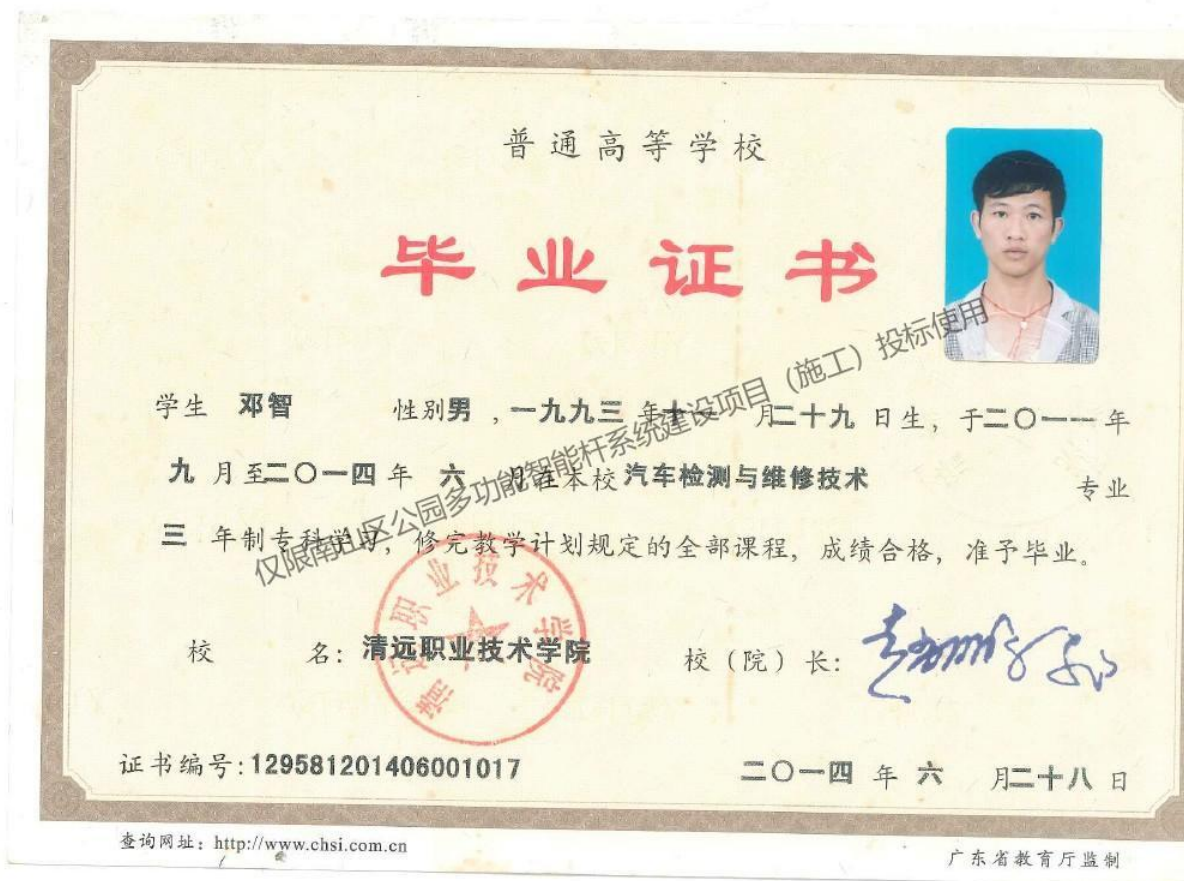 普通高等学校
毕业证书
学生 邓智 性别男，一九九三年十一月二十九日生，于二〇一一年
九月至二〇一四年六月在本校汽车检测与维修技术专业
三年制专科学习，修完教学计划规定的全部课程，成绩合格，准予毕业。
仅限南山区公园多功能智能杆系统建设项目（施工）投标使用
清远职业技术学院
校 名：清远职业技术学院 校（院）长：
证书编号：129581201406001017 二〇一四年六月二十八日
查询网址：http://www.chsi.com.cn 广东省教育厅监制